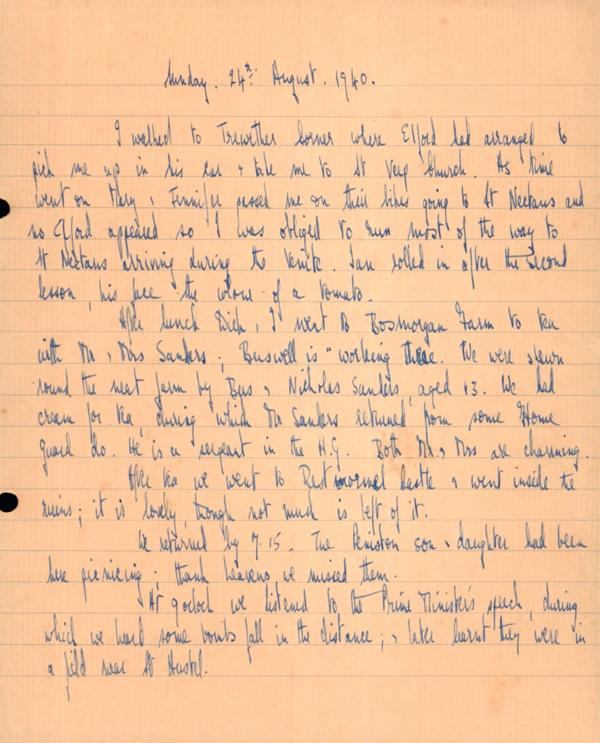 Sunday. 24th August. 1940.
I walked to Trewether Corner where Elford had arranged to
pick me up in his car & take me to St Veep Church. As time
went on Mary & Jennifer passed me on their bikes going to St Nectans and
no Elford appeared so I was obliged to run most of the way to
St Nectans arriving during the Venite. Ian rolled in after the second
lesson, his face the colour of a tomato.
After lunch Dick & I went to Bosmorgan Farm to tea
with Mr & Mrs Sanders; Buswell is "working there. We were shewn
round the neat farm by Bus & Nicholas Sanders, aged 13. We had
cream for tea, during which Mr Sanders returned from some Home
Guard do. He is a sergeant in the H.G. Both Mr & Mrs are charming.
After tea we went to Restormel Castle & went inside the
ruins; it is lovely, though not much is left of it.
We returned by 7.15. The Peniston son & daughter had been
here picnicing; thank heavens we missed them.
At 9 oclock we listened to the Prime Minister's speech, during
which we heard some bombs fall in the distance; & later learnt they were in
a field near St Austel.